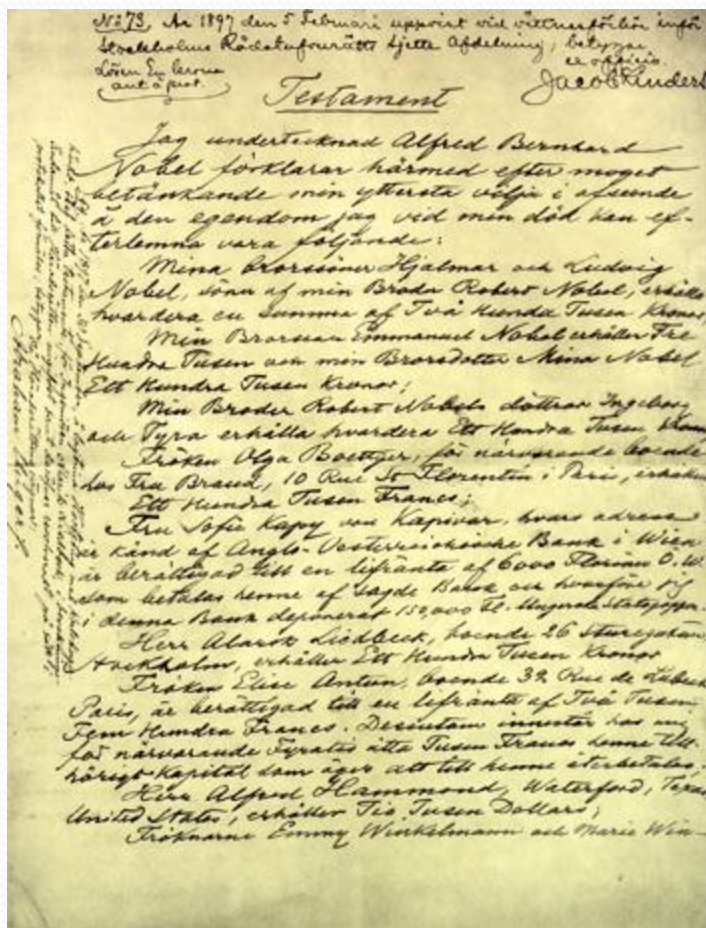 No 73. År 1897 den 5 Februari uppvist vid vittnesförhör inför
Stockholms Rådstufvurätts sjette Afdelning, betygar
ex officio.
Lösen En krona
Testament
Jag undertecknad Alfred Bernhard
Nobel förklarar härmed efter moget
betänkande min yttersta vilja i afseende
å den egendom jag vid min död kan ef-
terlemna vara följande:
Mina brorssöner Hjalmar och Ludvig
Nobel, söner af min Broder Robert Nobel, erhålla
hvardera en summa af Två Hundra Tusen Kronor;
Min Brorsson Emmanuel Nobel erhåller Tre
Hundra Tusen och min Brorsdotter Mina Nobel
Ett Hundra Tusen Kronor;
Min Broder Robert Nobels döttrar Ingeborg
och Tyra erhålla hvardera Ett Hundra Tusen Kronor
Fröken Olga Boettger, för närvarande boende
hos Fru Brand, 10 Rue St Florentin i Paris, erhåller
Ett Hundra Tusen Francs;
Fru Sofie Kapy von Kapivar, hvars adress
är känd af Anglo-Oesterreichische Bank i Wien
är berättigad till en lifränta af 6000 Florins Ö.W.
som betalas henne af sagde Bank och hvarföre jag
i denna Bank deponerat 150,000 Fl. i Ungerska Statspapper.
Herr Alarik Liedbeck, boende 26 Sturegatan,
Stockholm, erhåller Ett Hundra Tusen Kronor
Fröken Elise Antun, boende 32 Rue de Lubeck
Paris, är berättigad till en lifränta af Två Tusen
Fem Hundra Francs. Dessutom innestår hos mig
för närvarande Fyratio åtta Tusen Francs henne till-
hörigt Kapital som äger att till henne återbetalas;
Herr Alfred Hammond, Waterford, Texas
United States, erhåller Tio Tusen Dollars;
Fröknarne Emmy Winkelmann och Marie Win-